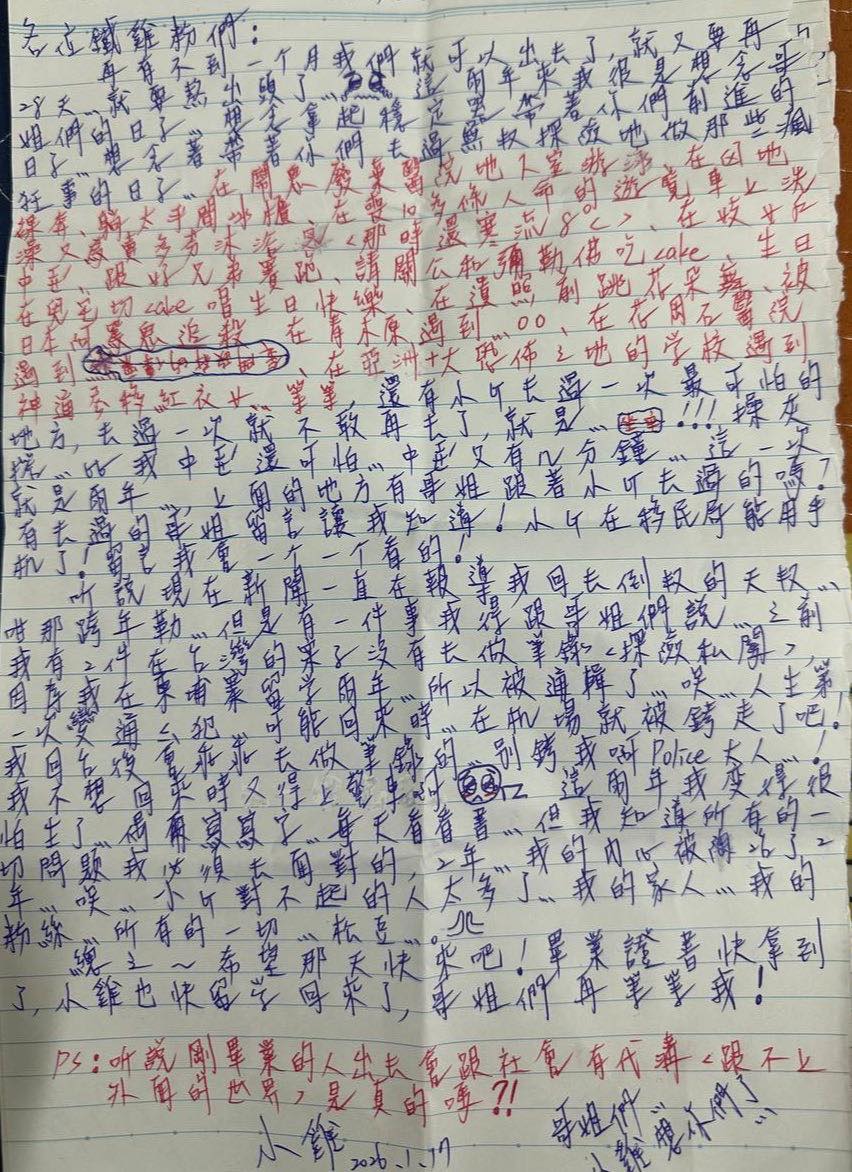 各位鐵雞粉們:
再有不到一个月我們就可以出去了,就又要再
28天...就要熬出頭了... 這兩年來我很是想念哥
姐們的日子...想念拿起穩定器帶著你們前進的
日子...想念著帶著你們去過無數探險地做那些瘋
狂事的日子...在鬧鬼廢棄醫院地下室游泳、在凶地
裸奔、躺太平間冰櫃、在喪10多條人命的遊覽車上洗
澡又麥當多芬沐浴乳<那時還寒流8℃>、在妓女户
中邪、跟好兄弟賽跑、請關公和彌勒佛吃cake、生日
在兇宅切cake唱生日快樂、在遺照前跳花朵舞、被
日本阿飄追殺、在青木原遇到...○○、在花岡石醫院
遇到 、在亞洲十大恐佈之地的学校遇到
神道委移"紅衣女"...等等,還有小ㄐ去過一次最可怕的
地方,去過一次就不敢再去了,就是... !!!操灰
撚...比我中邪還可怕...中邪又有几分鐘...這一次
就是兩年...,上面的地方有哥姐跟著小ㄐ去過的嗎?
有去過的哥姐留言讓我知道!小ㄐ在移民局能用手
机了!留言我會一个一个看的!
听說現在新聞一直在報導我回去倒數的天數...
咁那跨年勒...但是有一件事我得跟哥姐們說...之前
我有2件在台灣的案子沒有去做筆錄<探險私闖>,
因為我在柬埔寨留学兩年...所以被通輯了...唉...人生第
一次變通公犯...可能回來時...在机場就被銬走了吧!
我回台後會乖乖去做筆錄的...別銬我啊Police大人...!
我不想回來時又得上警車啊 這兩年我变得很
怕生了...偶爾寫寫字...每天看看書...但我知道所有的一
切問題我必須去面對的,2年...我的內心被掏空了2
年...唉...小ㄐ對不起的人太多了...我的家人...我的
粉絲...所有的一切...松豆...。
總之~希望那天快來吧!畢業證書快拿到
了,小雞也快留学回來了,哥姐們再等等我!
PS:听說剛畢業的人出去會跟社會有代溝<跟不上
外面的世界>是真的嗎?!
哥姐們...
小雞 2026.1.17
小雞想你們了...